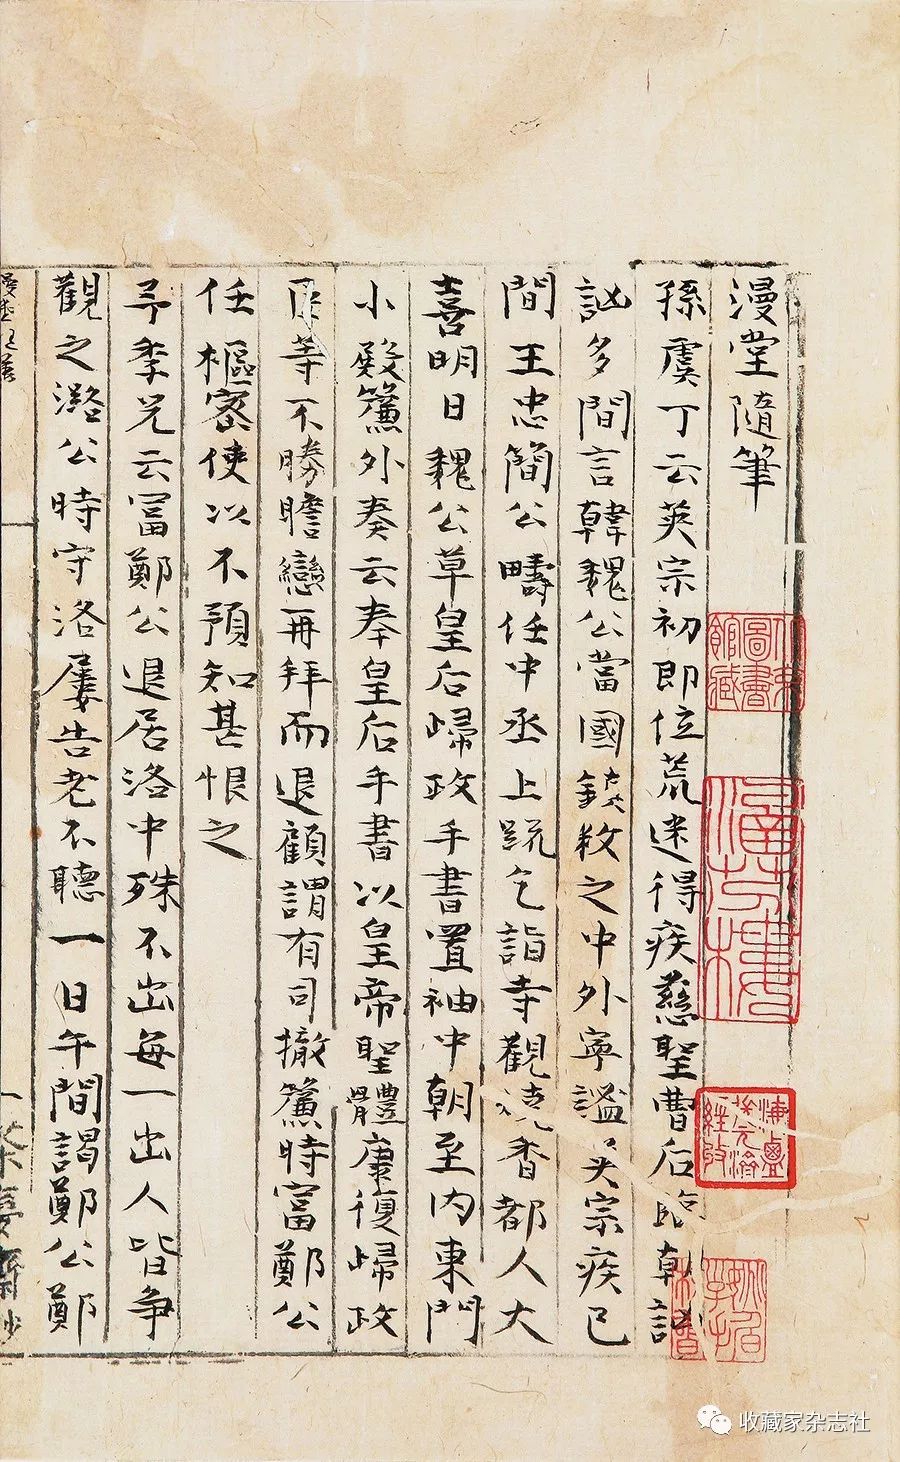 漫堂隨筆
孫虞丁云英宗初即位荒迷得疾慈聖曹后臨朝訩
訩多間言韓魏公當國鎮救之中外寧謐英宗疾已
間王忠簡公疇任中丞上䟽乞詣寺觀燒香都人大
喜明日魏公草皇后歸政手書置袖中朝至内東門
小殿簾外奏云奉皇后手書以皇帝聖體康復歸政
臣等不勝瞻戀再拜而退顧謂有司撤簾時富鄭公
任樞密使以不預知甚恨之
季兄云冨鄭公退居洛中殊不出每一出人皆争
觀之潞公時守洛屢告老不聽一日午間謁鄭公鄭
涵芬樓
海鹽張元濟經收
收藏家杂志社